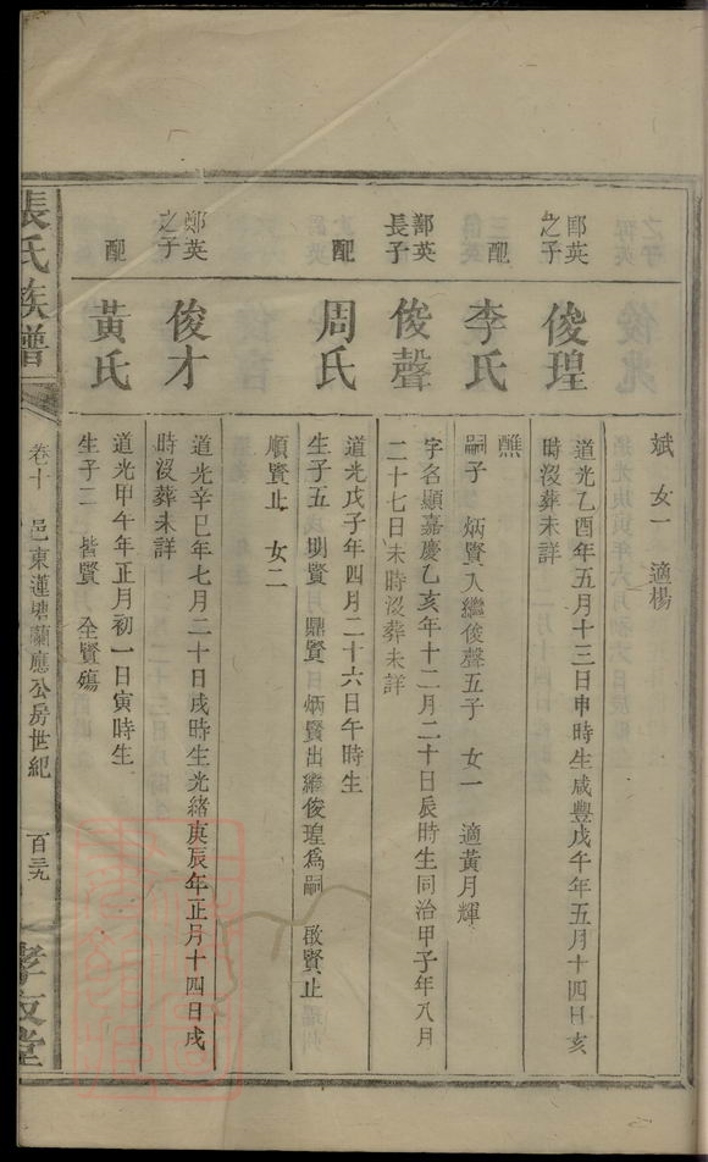 斌 女一 適楊
英之子
俊瑝
道光乙酉年五月十三日申時生咸豐戊午年五月十四日亥
時沒葬未詳
配
李氏
醮
嗣子 炳賢入繼俊聲五子 女一 適黃月輝
英長子
俊聲
字名顯嘉慶乙亥年十二月二十日辰時生同治甲子年八月
二十七日未時沒葬未詳
配
周氏
道光戊子年四月二十六日午時生
生子五 明賢 鼎賢 炳賢出繼俊瑝為嗣 啟賢止
順賢止 女二
鄭英之子
俊才
道光辛巳年七月二十日戌時生光緒庚辰年正月十四日戌
時沒葬未詳
配
黃氏
道光甲午年正月初一日寅時生
生子二 皆賢 全賢殤
張氏族譜
卷十 邑東蓮塘蘭應公房世紀
百三九
孝友堂